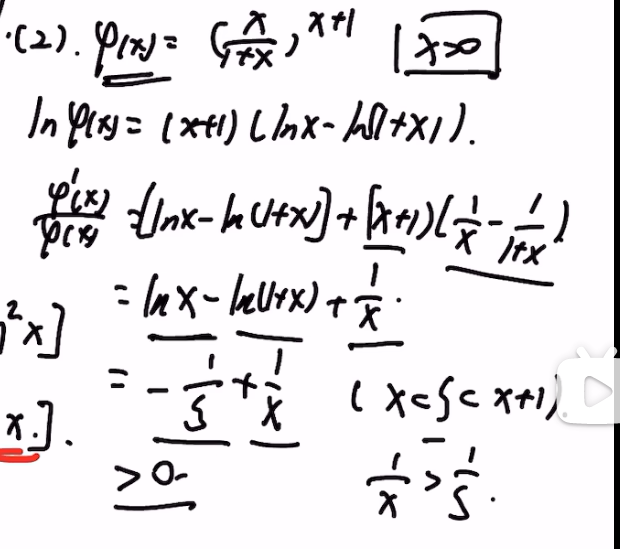 (2). φ(x) = (x/(1+x))^(x+1) | x>0
ln φ(x) = (x+1)(lnx - ln(1+x)).
φ'(x)/φ(x) = [lnx - ln(1+x)] + (x+1)(1/x - 1/(1+x))
= lnx - ln(1+x) + 1/x.
²x]
= -1/ξ + 1/x (x<ξ<x+1).
x.].
>0. 1/x > 1/ξ.